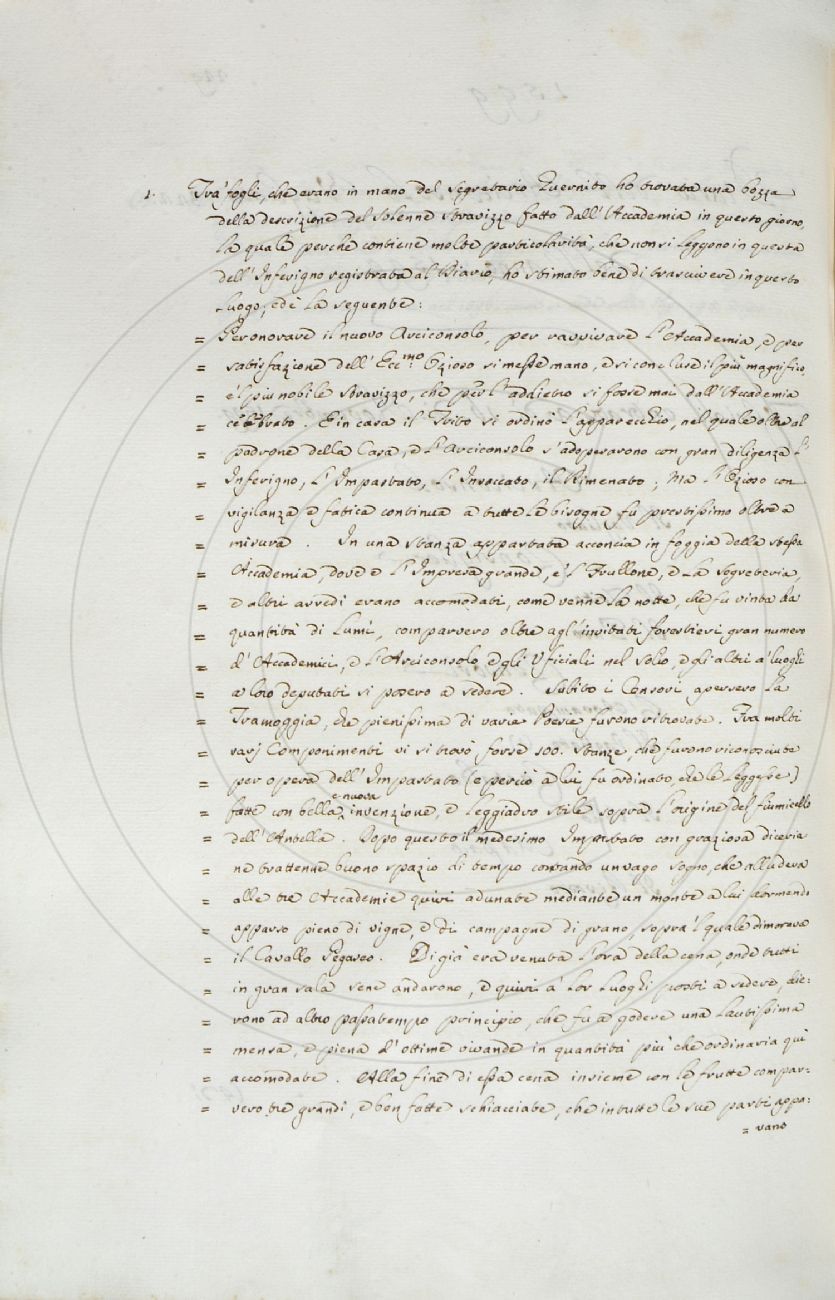 1. Tra' fogli, che erano in mano del Segretario Guernito ho trovata una bozza
della descrizione del solenne stravizzo fatto dall'Accademia in questo giorno,
la quale perche contiene molte particolarità, che non si leggono in questa
dell'Inferigno registrata al Diario, ho stimato bene di trascrivere in questo
luogo, ed è la seguente:
= Per onorare il nuovo Arciconsolo, per ravvivare l'Accademia, e per
= satisfazione dell'Ecc.mo Ozioso si messe mano, e si concluse il più magnifico,
= e 'l più nobile stravizzo, che per l'addietro si fosse mai dall'Accademia
= celebrato. E in casa il Trito si ordinò l'apparecchio, nel quale oltre al
= padrone della Casa, e l'Arciconsolo s'adoperarono con gran diligenza l'
= Inferigno, l'Impastato, l'Insaccato, il Rimenato; Ma l'Ozioso con
= vigilanza e fatica continua a tutte le bisogne fu prestissimo oltre a
= misura. In una stanza appartata acconcia in foggia della stessa
= Accademia, dove e l'Impresa grande, e 'l Frullone, e la Segreteria,
= e altri arredi erano accomodati, come venne la notte, che fu vinta da
= quantità di Lumi, comparsero oltre agl'invitati forestieri gran numero
= d'Accademici, e l'Arciconsolo, e gli Uficiali nel solio, e gli altri a' luoghi
= a loro deputati si posero a sedere. Subito i Censori apersero la
= Tramoggia, che pienissima di varie Poesie furono ritrovate. Tra molti
= varj Componimenti vi si trovò forse 100. stanze, che furono riconosciute
= per opera dell'Impastato (e perciò a lui fu ordinato, che le leggesse)
= fatte con bella, e nuova invenzione, e leggiadro stile sopra l'origine del fiumicello
= dell'Antella. Dopo questo il medesimo Impastato con graziosa diceria
= ne trattenne buono spazio di tempo contando un vago sogno, che alludeva
= alle tre Accademie quivi adunate mediante un monte a lui dormendo
= apparso pieno di vigne, e di campagne di grano, sopra 'l quale dimorava
= il Cavallo Pegaseo. Di già era venuta l'ora della cena, onde tutti
= in gran sala sene andarono, e quivi a' lor luoghi posti a sedere, die-
= rono ad altro passatempo principio, che fu a godere una lautissima
= mensa, e piena d'ottime vivande in quantità più che ordinaria quì
= accomodate. Alla fine di essa cena insieme con le frutte compar-
= vero tre grandi, e ben fatte schiacciate, che in tutte le sue parti appa-
= vano